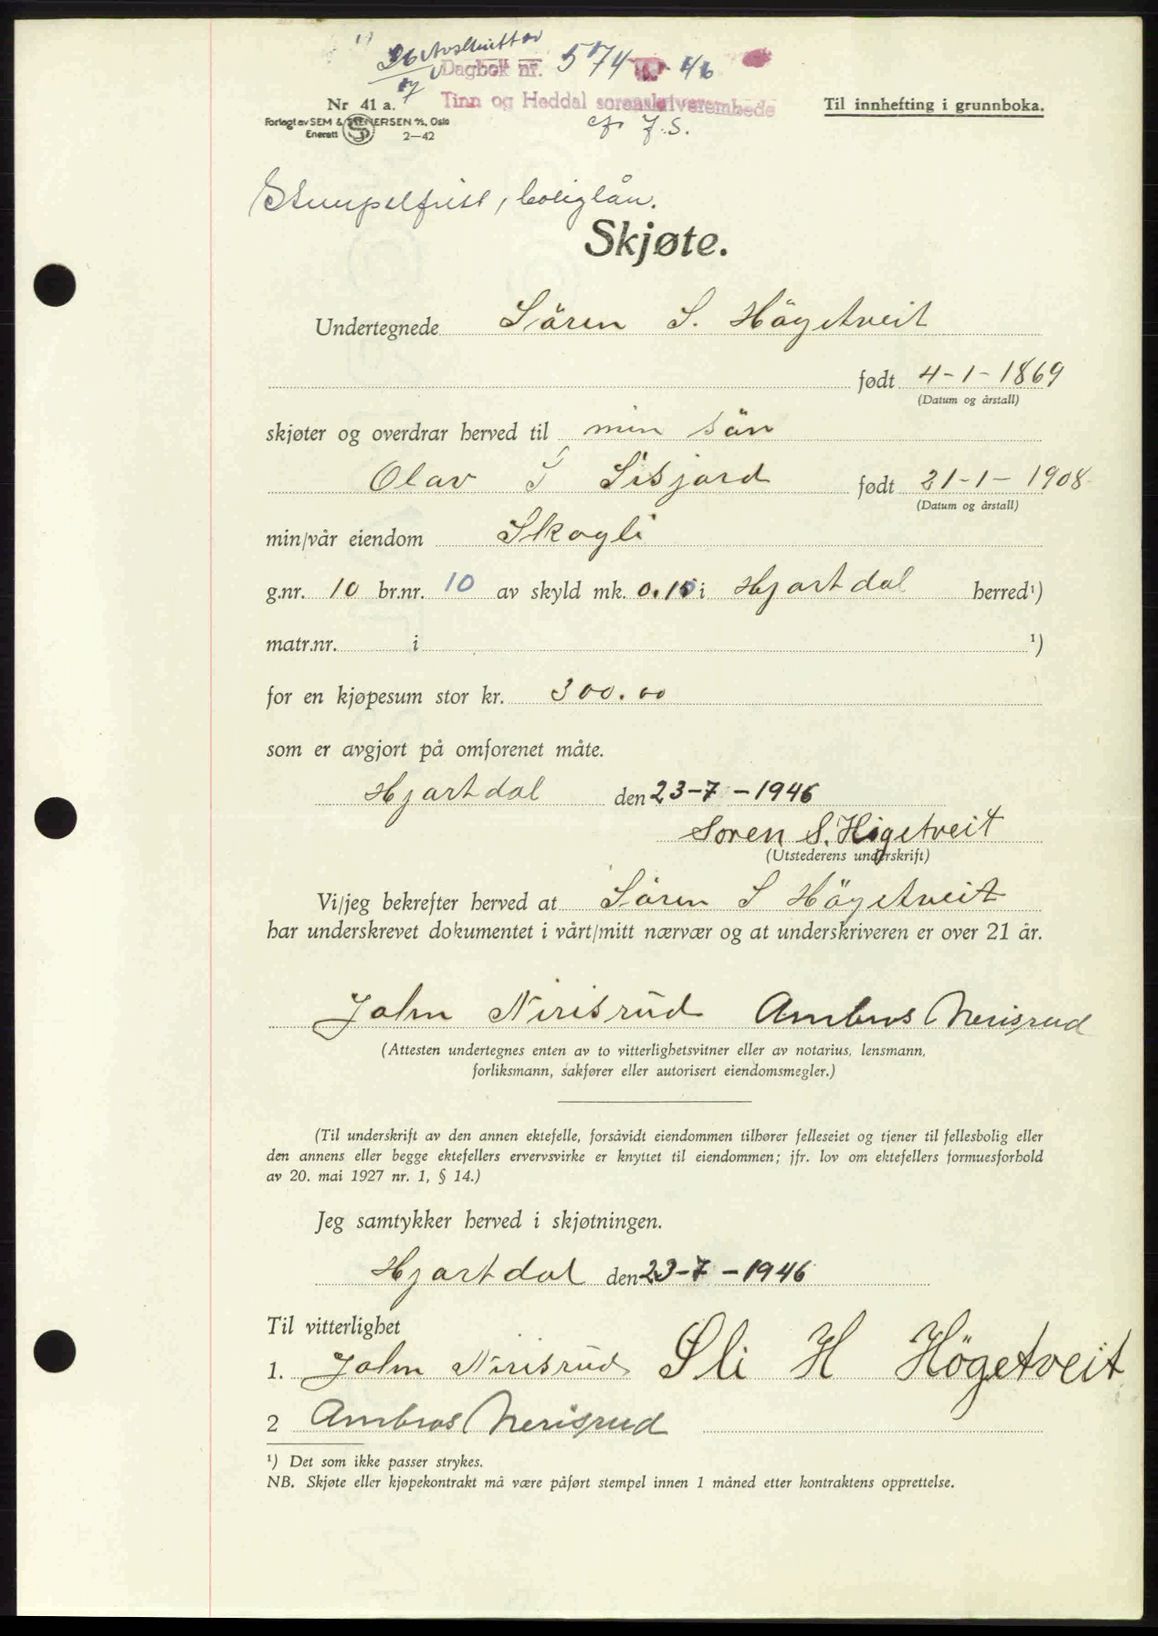 Dagbok nr. 574 46
Nr 41 a.
Tinn og Heddal sorenskriverembede
Til innhefting i grunnboka.
Forlagt av SEM & STENERSEN A/S, Oslo
Enerett 2-42
J.S.
Stempelfritt, boliglån.
Skjøte.
Undertegnede Sören S. Högetveit
født 4-1-1869
(Datum og årstall)
skjøter og overdrar herved til min sön
Olav S Lisjord født 21-1-1908
(Datum og årstall)
min/vår eiendom Skogli
g.nr. 10 br.nr. 10 av skyld mk. 0.15 i Hjartdal herred¹)
matr.nr. i ¹)
for en kjøpesum stor kr. 300.00
som er avgjort på omforenet måte.
Hjartdal den 23-7-1946
Soren S. Högetveit
(Utstederens underskrift)
Vi/jeg bekrefter herved at Sören S Högetveit
har underskrevet dokumentet i vårt/mitt nærvær og at underskriveren er over 21 år.
John Nirisrud Ambros Nerisrud
(Attesten undertegnes enten av to vitterlighetsvitner eller av notarius, lensmann,
forliksmann, sakfører eller autorisert eiendomsmegler.)
(Til underskrift av den annen ektefelle, forsåvidt eiendommen tilhører felleseiet og tjener til fellesbolig eller
den annens eller begge ektefellers ervervsvirke er knyttet til eiendommen; jfr. lov om ektefellers formuesforhold
av 20. mai 1927 nr. 1, § 14.)
Jeg samtykker herved i skjøtningen.
Hjartdal den 23-7-1946
Til vitterlighet
1. John Nirisrud Sli H Högetveit
2 Ambros Nerisrud
¹) Det som ikke passer strykes.
NB. Skjøte eller kjøpekontrakt må være påført stempel innen 1 måned etter kontraktens opprettelse.